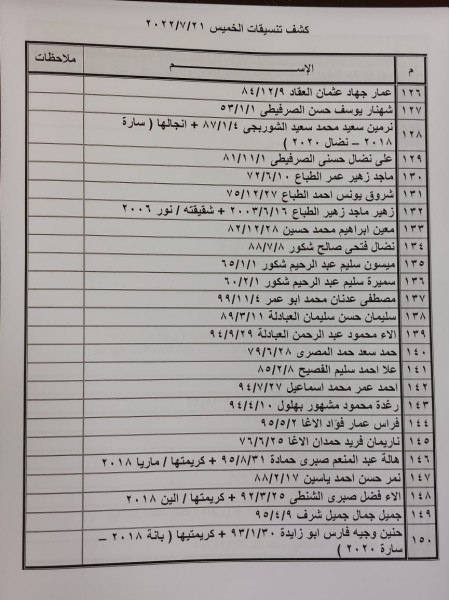 كشف تنسيقات الخميس ٢٠٢٢/٧/٢١
م الإســـم ملاحظات
١٢٦ عمار جهاد عثمان العقاد ٨٤/١٢/٩
١٢٧ شهناز يوسف حسن الصرفيطى ٥٣/١/١
١٢٨ نرمين سعيد محمد سعيد الشوربجى ٨٧/١/٤ + انجالها ( سارة
٢٠١٨ – نضال ٢٠٢٠ )
١٢٩ على نضال حسنى الصرفيطى ٨١/١١/١
١٣٠ ماجد زهير عمر الطباع ٧٢/٦/١٠
١٣١ شروق يونس احمد الطباع ٧٥/١٢/٢٧
١٣٢ زهير ماجد زهير الطباع ٢٠٠٣/٦/١٦ + شقيقته / نور ٢٠٠٦
١٣٣ معين ابراهيم محمد حسين ٨٢/١٢/٢٨
١٣٤ نضال فتحى صالح شكور ٨٨/٧/٨
١٣٥ ميسون سليم عبد الرحيم شكور ٦٥/١/١
١٣٦ سميرة سليم عبد الرحيم شكور ٦٠/٢/١
١٣٧ مصطفى عدنان محمد ابو عمر ٩٩/١١/٤
١٣٨ سليمان حسن سليمان العبادلة ٨٩/٣/١١
١٣٩ الاء محمود عبد الرحمن العبادلة ٩٤/٩/٢٩
١٤٠ حمد سعد حمد المصرى ٧٩/٦/٢٨
١٤١ علا احمد سليم الفصيح ٨٥/٢/٨
١٤٢ احمد عمر محمد اسماعيل ٩٤/٧/٢٧
١٤٣ رغدة محمود مشهور بهلول ٩٤/٤/١٠
١٤٤ فراس عمار فؤاد الاغا ٩٥/٥/٢
١٤٥ ناريمان فريد حمدان الاغا ٧٦/٦/٢٥
١٤٦ هالة عبد المنعم صبرى حمادة ٩٥/٨/٣١ + كريمتها / ماريا ٢٠١٨
١٤٧ نمر حسن احمد ياسين ٨٨/٢/١٧
١٤٨ الاء فضل صبرى الشنطى ٩٢/٣/٢٥ + كريمتها / الين ٢٠١٨
١٤٩ جميل جمال جميل شرف ٩٥/٤/٩
١٥٠ حنين وجيه فارس ابو زايدة ٩٣/١/٣٠ + كريمتيها ( بانة ٢٠١٨ –
سارة ٢٠٢٠ )